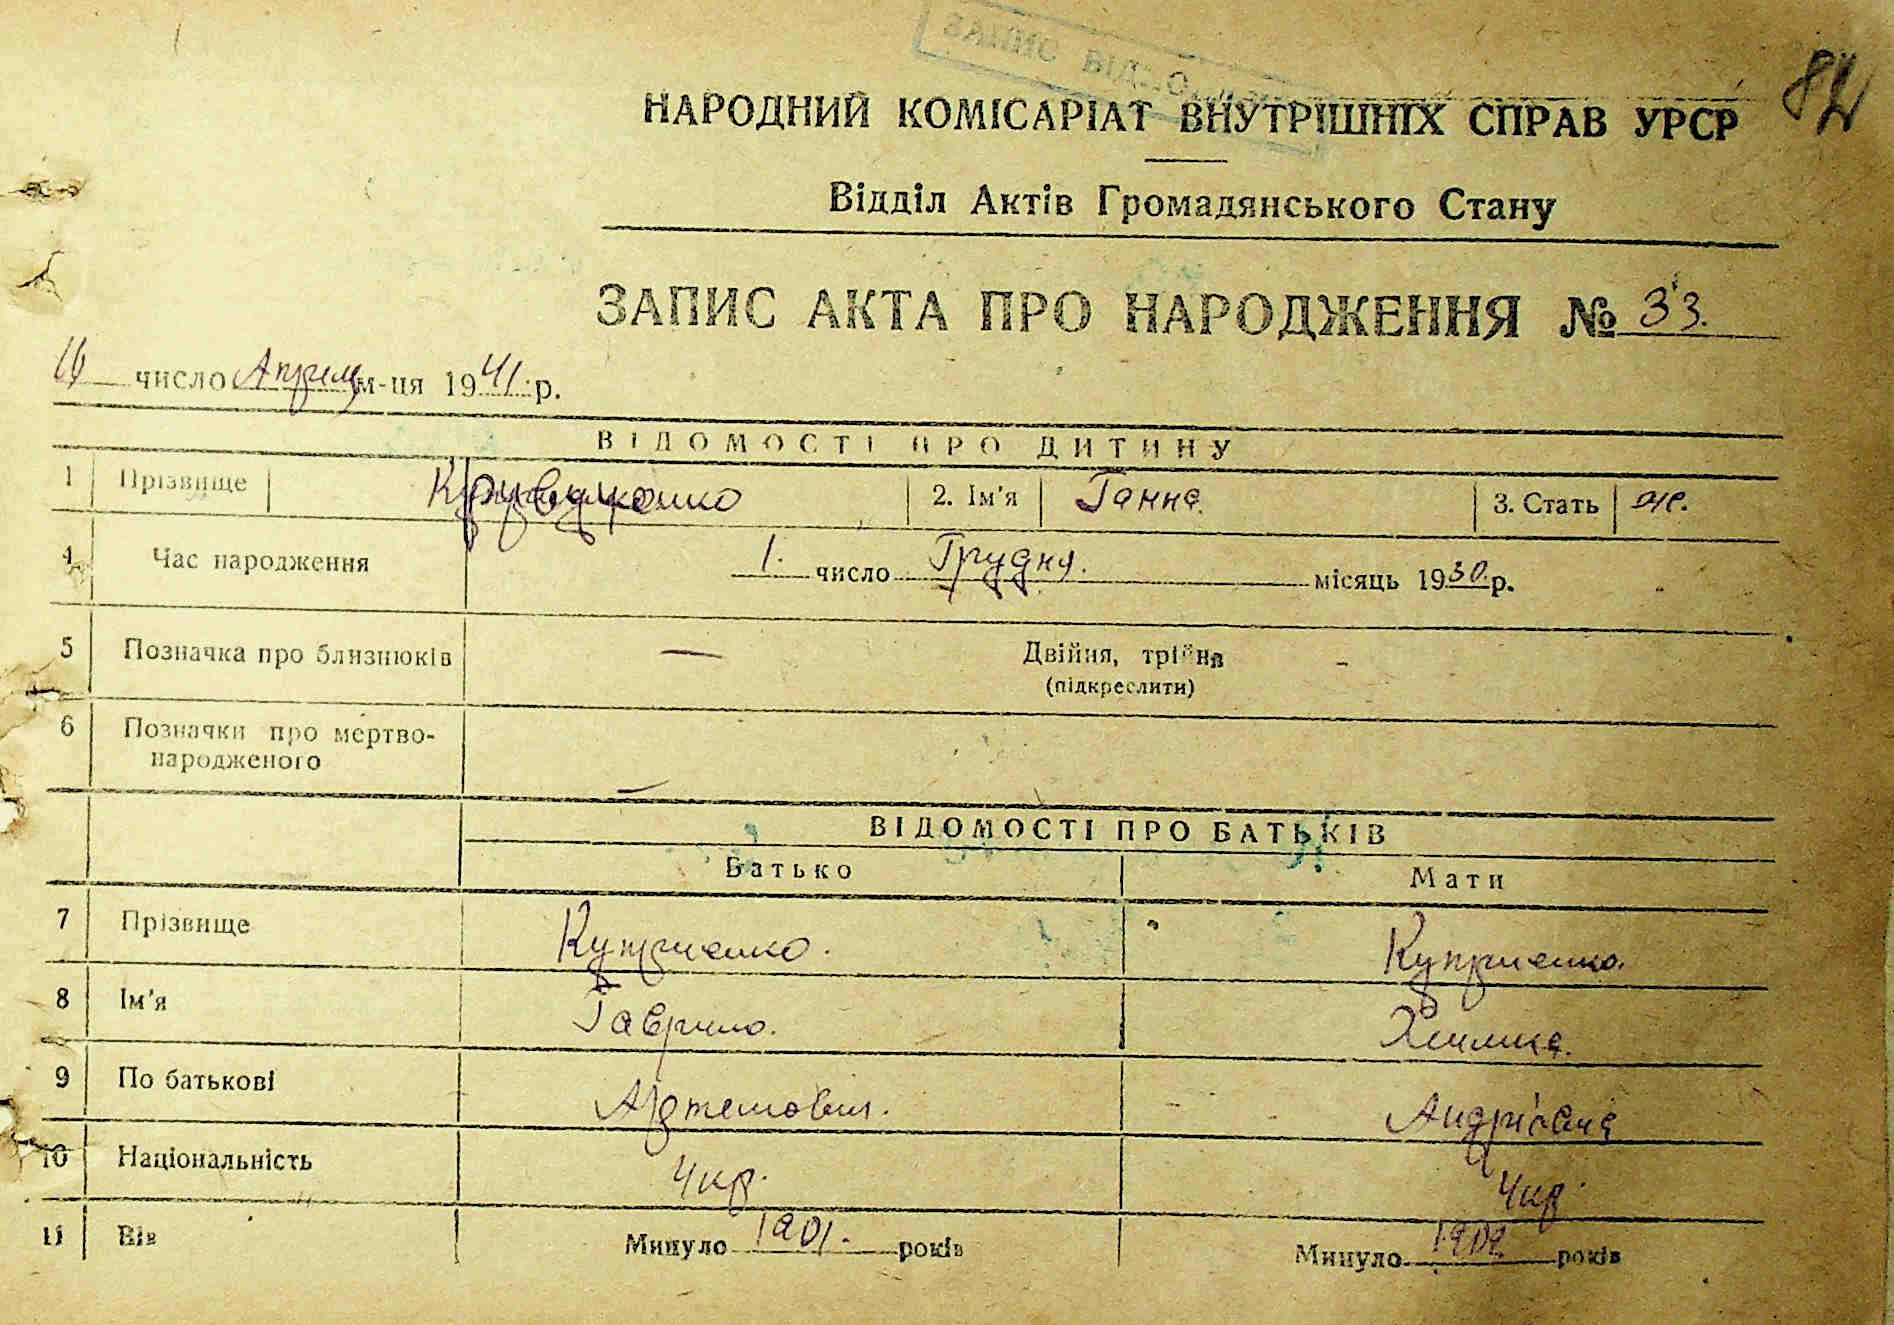 82
НАРОДНИЙ КОМІСАРІАТ ВНУТРІШНІХ СПРАВ УРСР
Відділ Актів Громадянського Стану
ЗАПИС АКТА ПРО НАРОДЖЕННЯ № 33.
число м-ця 1941 р.
ВІДОМОСТІ ПРО ДИТИНУ
1 Прізвище 2. Ім'я Ганна 3. Стать ж.
4 Час народження 1. число Грудня. місяць 1930 р.
5 Позначка про близнюків — Двійня, трійня
(підкреслити)
6 Позначки про мертво-
народженого —
ВІДОМОСТІ ПРО БАТЬКІВ
Батько Мати
7 Прізвище Купрієнко. Купрієнко.
8 Ім'я Гаврило.
9 По батькові Артемович. Андріївна
10 Національність Укр. Укр.
11 Вік Минуло 1901. років Минуло років